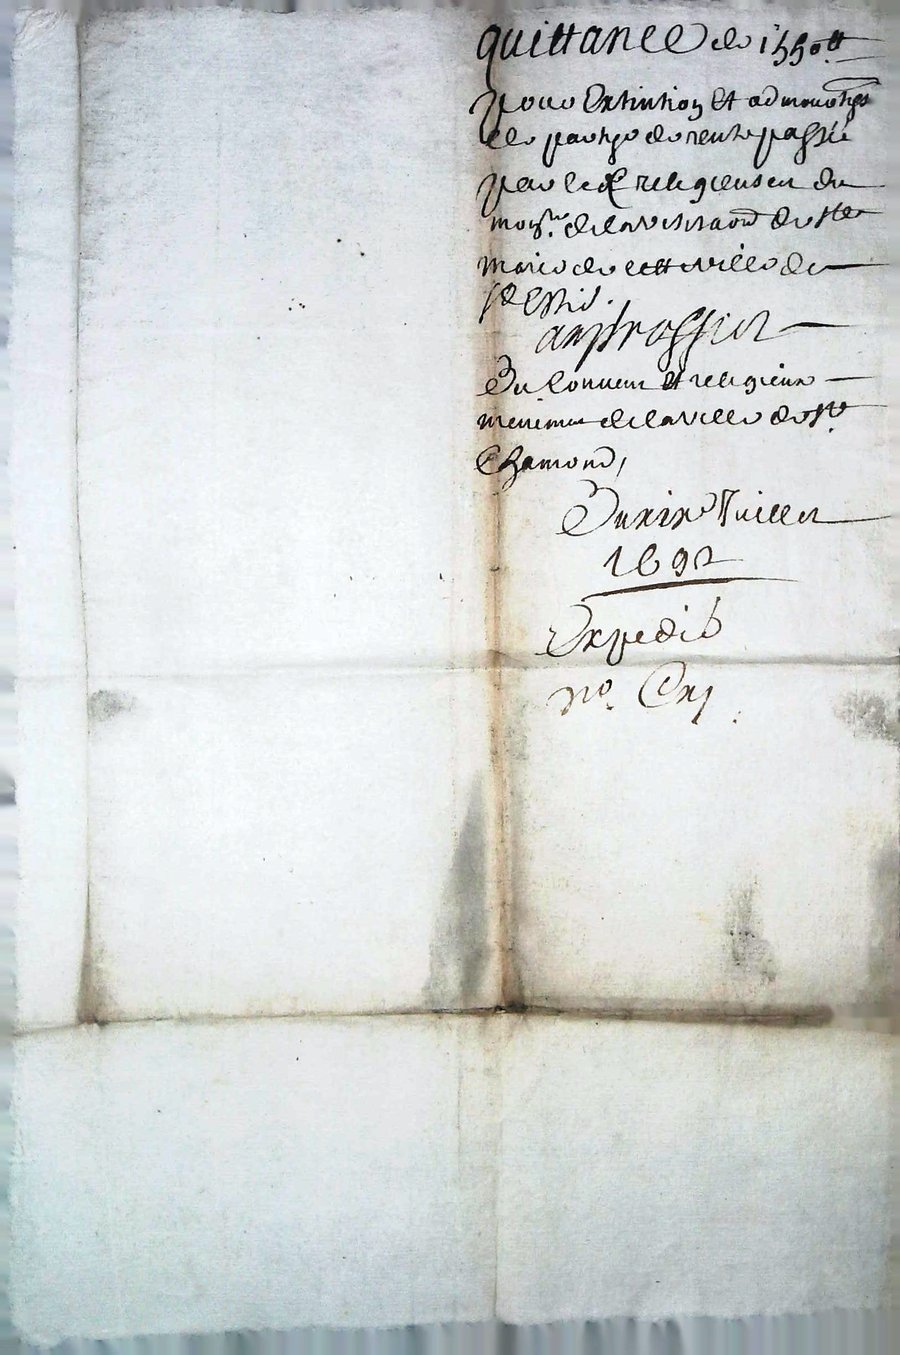 quittance de 1550 tt
pour Extintion Et admortiss
de partye de rente passée
par les religieuses du
mo.re de la visitaon de Ste
marie de cette ville de
St Esti.
au proffict
Du Couvent Et religieux
menimes de la ville de St.
Chamond,
Du xix Juillet
1692
Expedié
no.